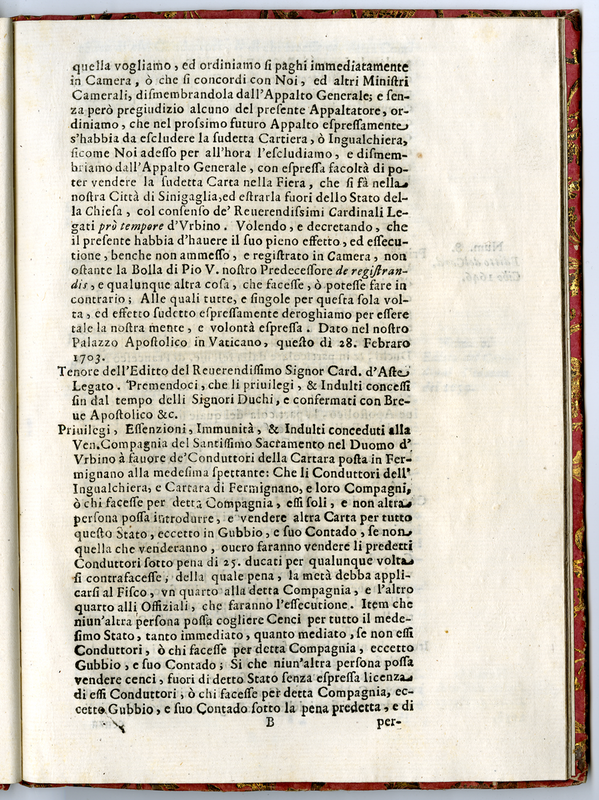 quella vogliamo, ed ordiniamo si paghi immediatamente
in Camera, ò che si concordi con Noi, ed altri Ministri
Camerali, dismembrandola dall'Appalto Generale; e sen-
za però pregiudizio alcuno del presente Appaltatore, or-
diniamo, che nel prossimo futuro Appalto espressamente
s'habbia da escludere la sudetta Cartiera, ò Ingualchiera,
sicome Noi adesso per all'hora l'escludiamo, e dismem-
briamo dall'Appalto Generale, con espressa facoltà di po-
ter vendere la sudetta Carta nella Fiera, che si fà nella
nostra Città di Sinigaglia, ed estrarla fuori dello Stato del-
la Chiesa, col consenso de' Reuerendissimi Cardinali Le-
gati prò tempore d'Vrbino. Volendo, e decretando, che
il presente habbia d'hauere il suo pieno effetto, ed essecu-
tione, benche non ammesso, e registrato in Camera, non
ostante la Bolla di Pio V. nostro Predecessore de registran-
dis, e qualunque altra cosa, che facesse, ò potesse fare in
contrario; Alle quali tutte, e singole per questa sola vol-
ta, ed effetto sudetto espressamente deroghiamo per essere
tale la nostra mente, e volontà espressa. Dato nel nostro
Palazzo Apostolico in Vaticano, questo dì 28. Febraro
1703.
Tenore dell'Editto del Reuerendissimo Signor Card. d'Aste
Legato. Premendoci, che li priuilegi, & Indulti concessi
sin dal tempo delli Signori Duchi, e confermati con Bre-
ue Apostolico &c.
Priuilegi, Essenzioni, Immunità, & Indulti conceduti alla
Ven. Compagnia del Santissimo Sacramento nel Duomo d'
Vrbino à fauore de' Conduttori della Cartara posta in Fer-
mignano alla medesima spettante: Che li Conduttori dell'
Ingualchiera, e Cartara di Fermignano, e loro Compagni,
ò chi facesse per detta Compagnia, essi soli, e non altra
persona possa introdurre, e vendere altra Carta per tutto
questo Stato, eccetto in Gubbio, e suo Contado, se non
quella che venderanno, ouero faranno vendere li predetti
Conduttori sotto pena di 25. ducati per qualunque volta
si contrafacesse, della quale pena, la metà debba appli-
carsi al Fisco, vn quarto alla detta Compagnia, e l'altro
quarto alli Offiziali, che faranno l'essecutione. Item che
niun'altra persona possa cogliere Cenci per tutto il mede-
simo Stato, tanto immediato, quanto mediato, se non essi
Conduttori, ò chi facesse per detta Compagnia, eccetto
Gubbio, e suo Contado; Si che niun'altra persona possa
vendere cenci, fuori di detto Stato senza espressa licenza
di essi Conduttori, ò chi facesse per detta Compagnia, ec-
cetto Gubbio, e suo Contado sotto la pena predetta, e di
B per-